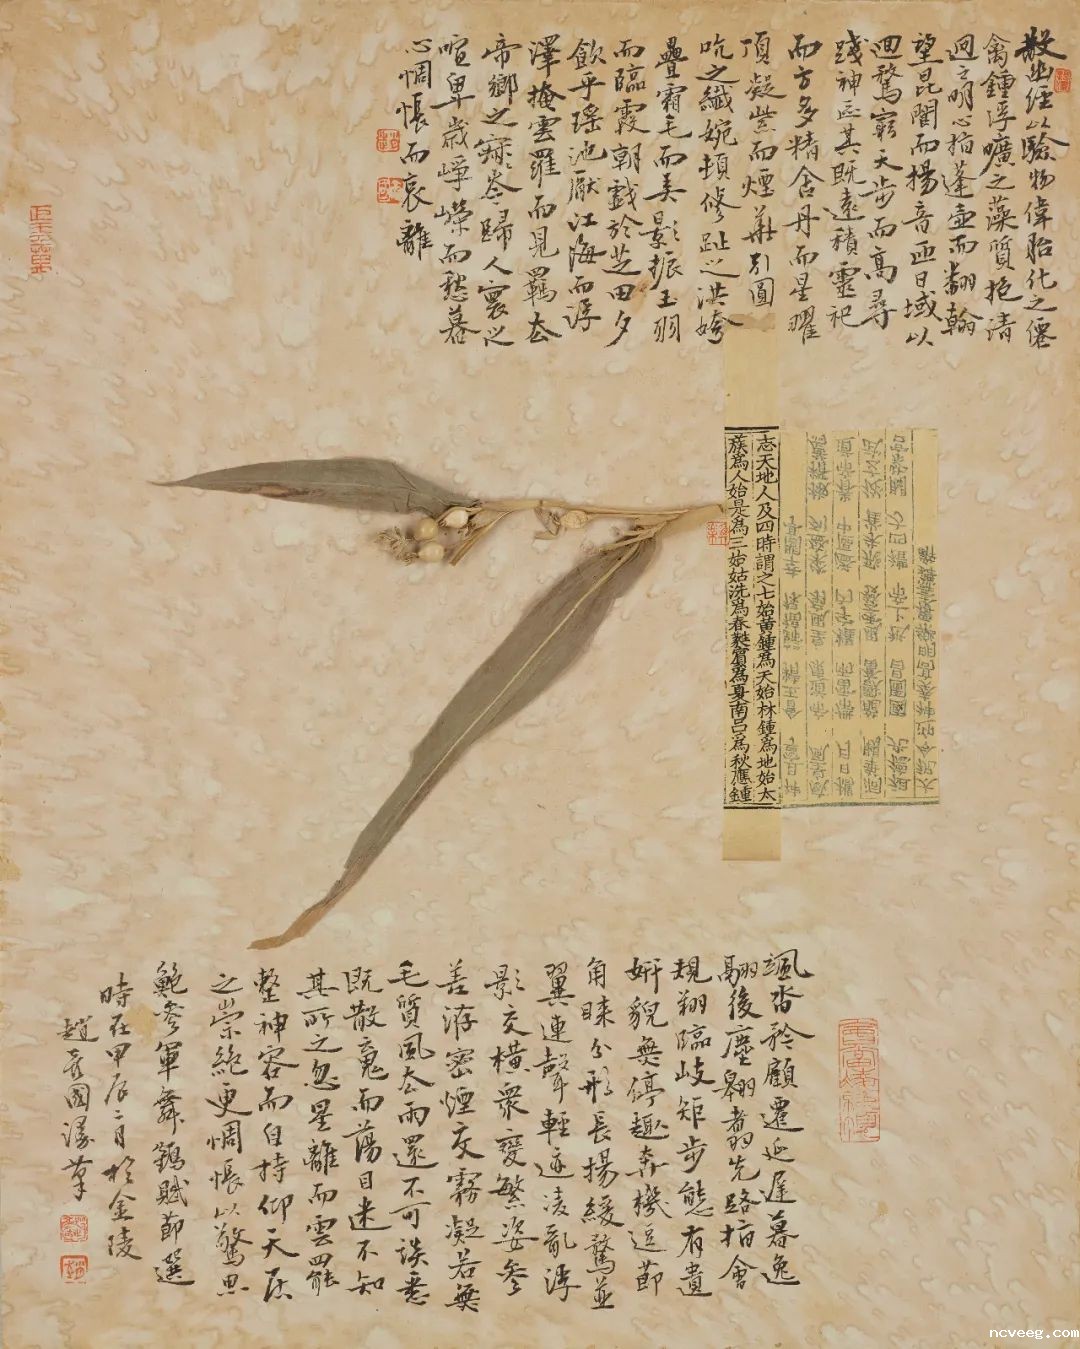 散幽經以驗物偉胎化之僊
禽鍾浮曠之藻質抱清
迥之明心指蓬壺而翻翰
望昆閬而揚音帀日域以
迴鶩窮天步而高尋
踐神區其既遠積靈祀
而方多精含丹而星曜
頂凝紫而煙華引圓
吭之纖婉頓修趾之洪姱
疊霜毛而弄影振玉羽
而臨霞朝戲於芝田夕
飲乎瑤池厭江海而游
澤掩雲羅而見羈去
帝鄉之寂岑歸人寰之
喧卑歲崢嶸而愁暮
心惆悵而哀離
志天地人及四時謂之七始黃鍾為天始林鍾為地始太
蔟為人始是為三始姑洗為春蕤賓為夏南呂為秋應鍾
颯沓矜顧遷延遲暮逸
翮後塵翱翥先路指會
規翔臨岐矩步態有遺
妍貌無停趣奔機逗節
角睞分形長揚緩鶩並
翼連聲輕迹凌亂浮
影交橫眾變繁姿參
差洊密煙交霧凝若無
毛質風去雨還不可談悉
既散魂而蕩目迷不知
其所之忽星離而雲罷
整神容而自持仰天居
之崇絕更惆悵以驚思
鮑參軍舞鶴賦節選
時在甲辰二月於金陵
趙彥國
ncveeg.com